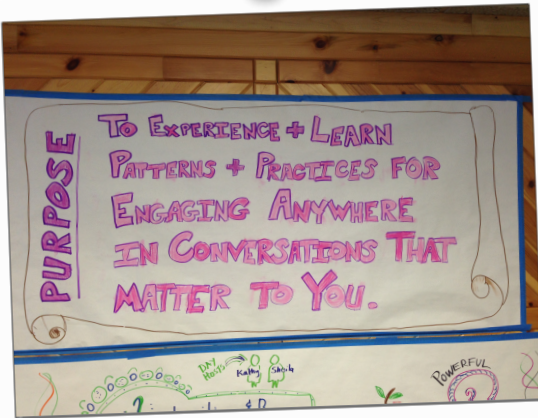 PURPOSE
TO EXPERIENCE + LEARN
PATTERNS + PRACTICES FOR
ENGAGING ANYWHERE
IN CONVERSATIONS THAT
MATTER TO YOU.
DAY
HOSTS
Kathy
POWERFUL